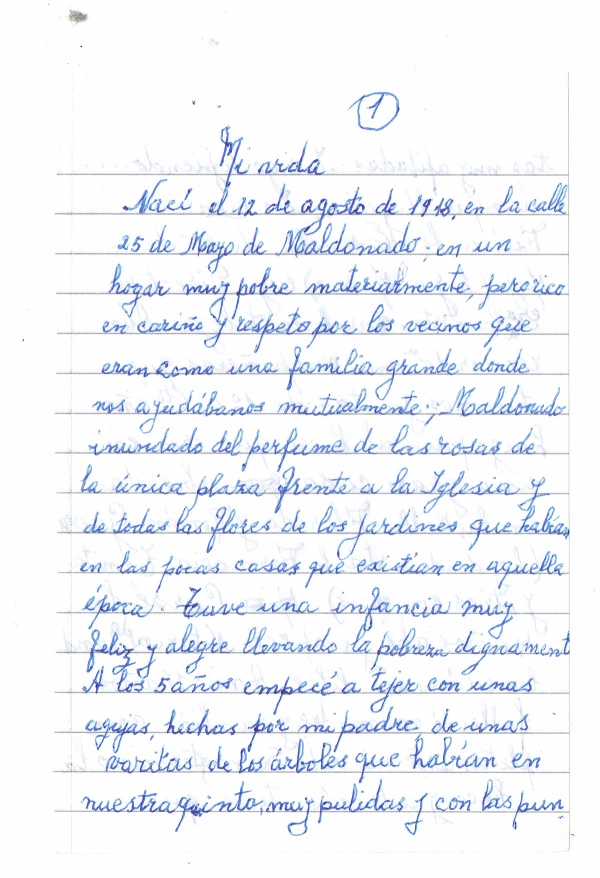 1
Mi vida
Nací el 12 de agosto de 1918, en la calle
25 de Mayo de Maldonado; en un
hogar muy pobre materiarmente, pero rico
en cariño y respeto por los vecinos que
eran como una familia grande donde
nos ayudábanos mutualmente.; Maldonado
inundado del perfume de las rosas de
la única plaza frente a la Iglesia y
de todas las flores de los jardines que habían
en las pocas casas que existían en aquella
época. Tuve una infancia muy
feliz y alegre llevando la pobreza dignament
A los 5 años empecé a tejer con unas
agujas, hechas por mi padre, de unas
varitas de los árboles que habían en
nuestra quinto, muy pulidas y con las pun